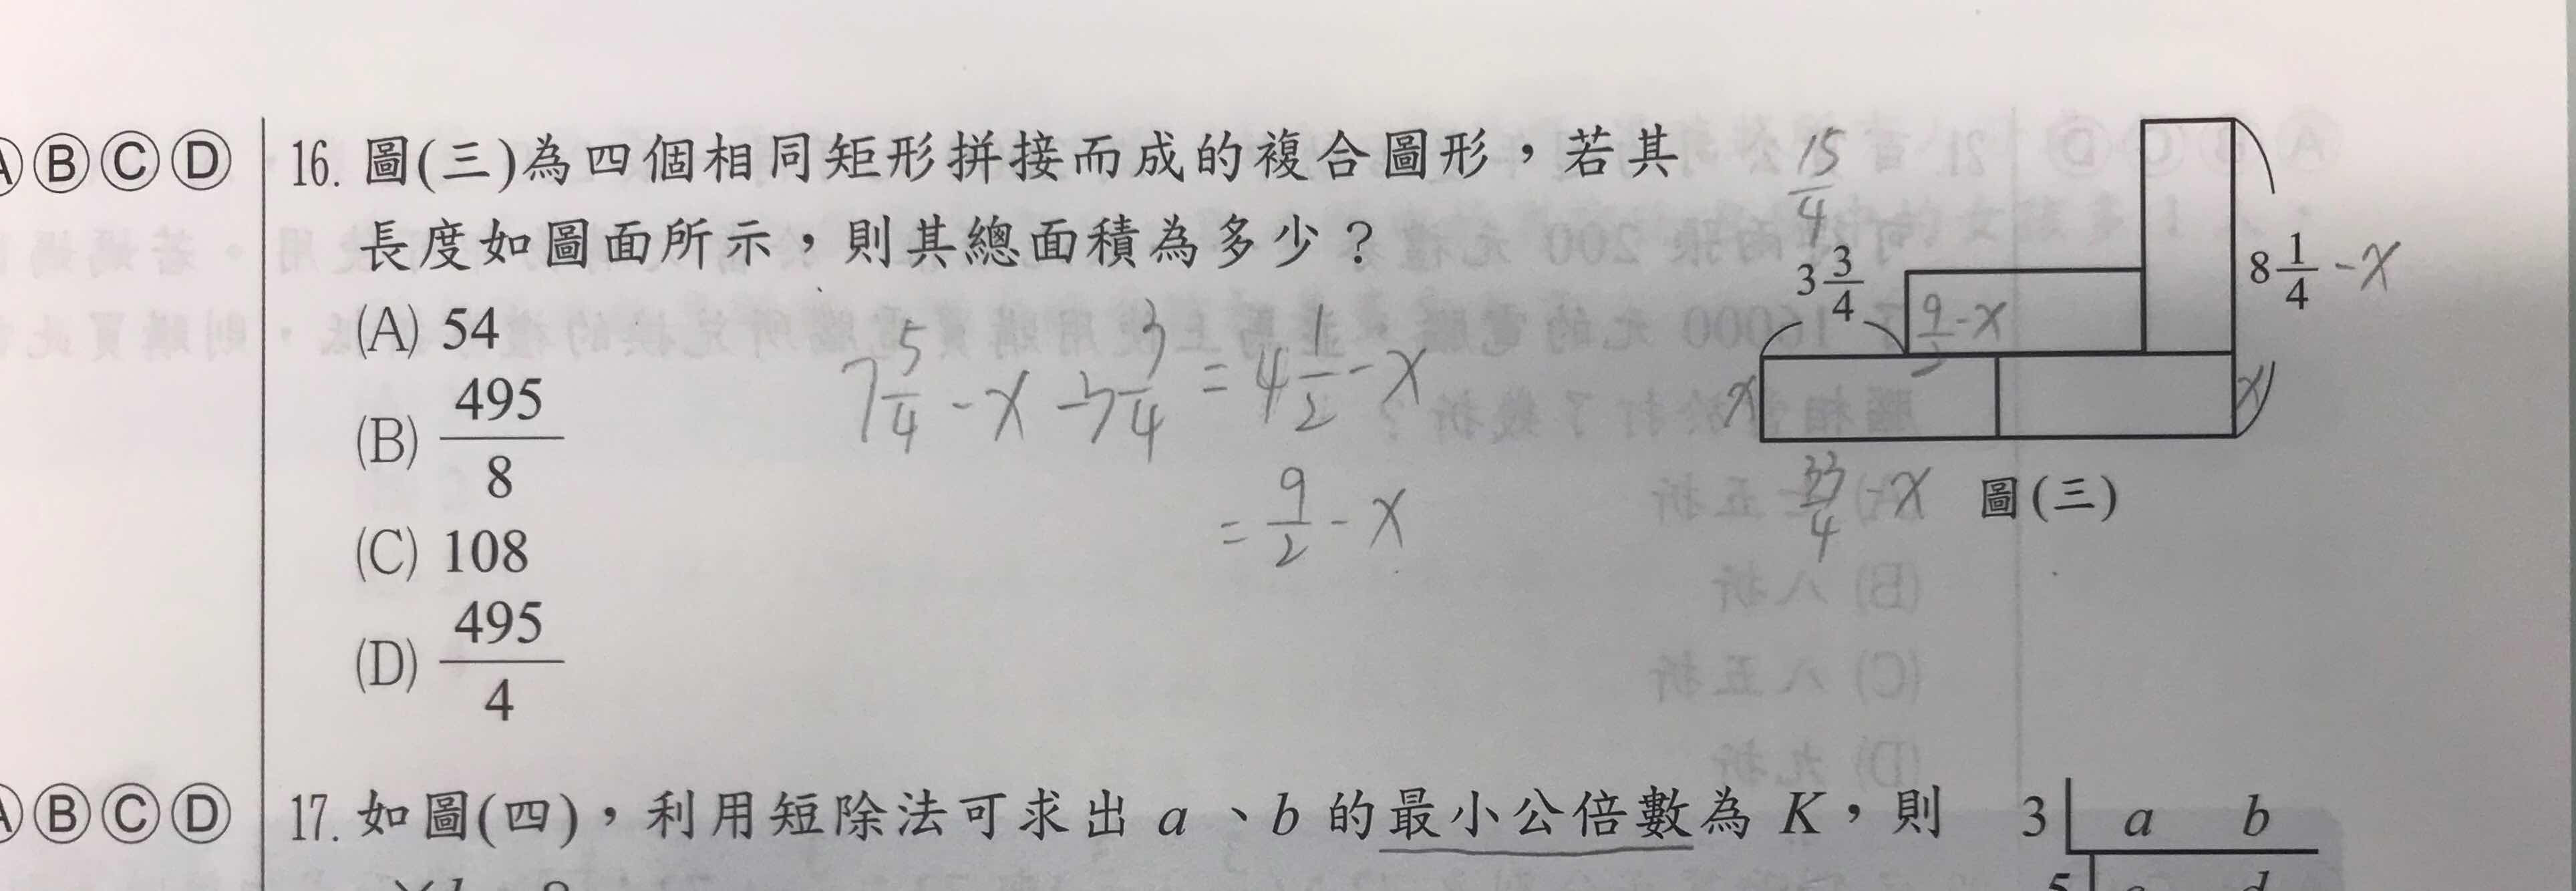 Ⓑ Ⓒ Ⓓ
16. 圖(三)為四個相同矩形拼接而成的複合圖形，若其
長度如圖面所示，則其總面積為多少？
(A) 54
(B) 495/8
(C) 108
(D) 495/4
7 5/4 - x - 3 3/4 = 4 1/2 - x
= 9/2 - x
15/4
3 3/4
9/2 - x
8 1/4 - x
x
x
33/4 - x
圖(三)
Ⓑ Ⓒ Ⓓ
17. 如圖(四)，利用短除法可求出 a、b 的最小公倍數為 K，則
3 a b